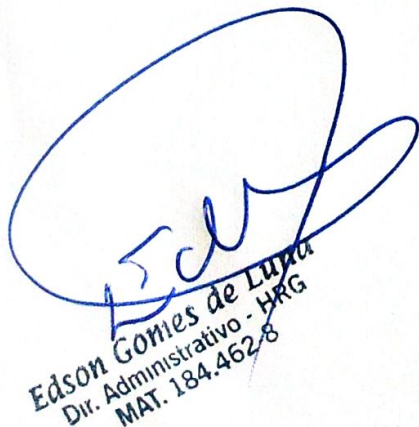 Edson Gomes de Luna
Dir. Administrativo - HRG
MAT. 184.462-8